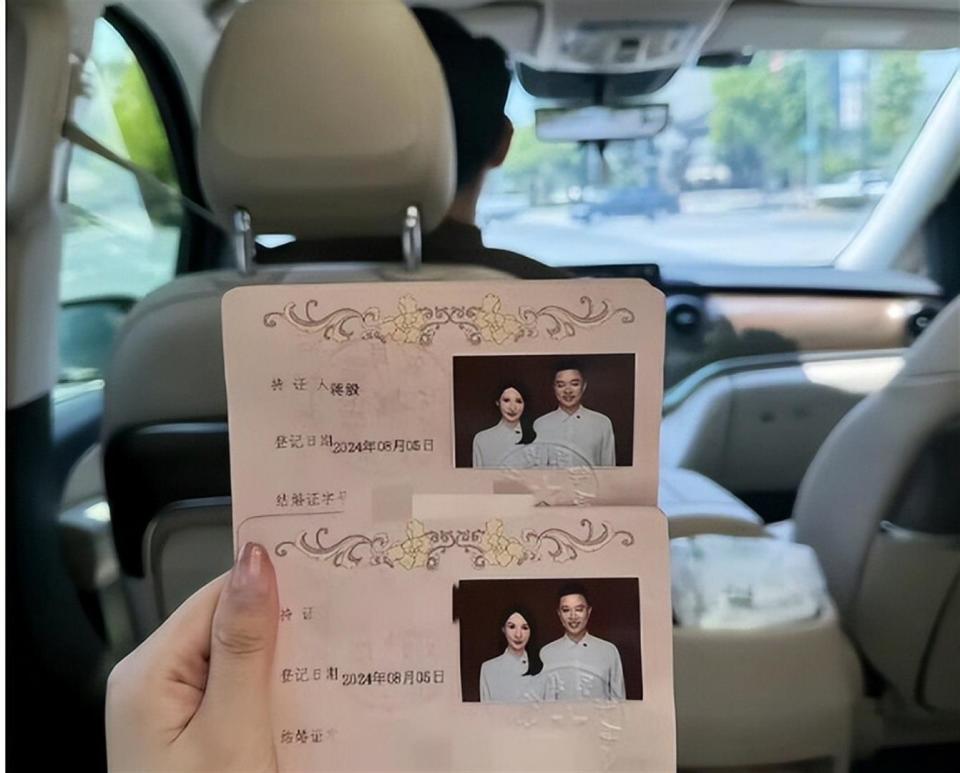 持证人 蒋毅
登记日期 2024年08月05日
结婚证字号
持证
登记日期 2024年08月05日
结婚证